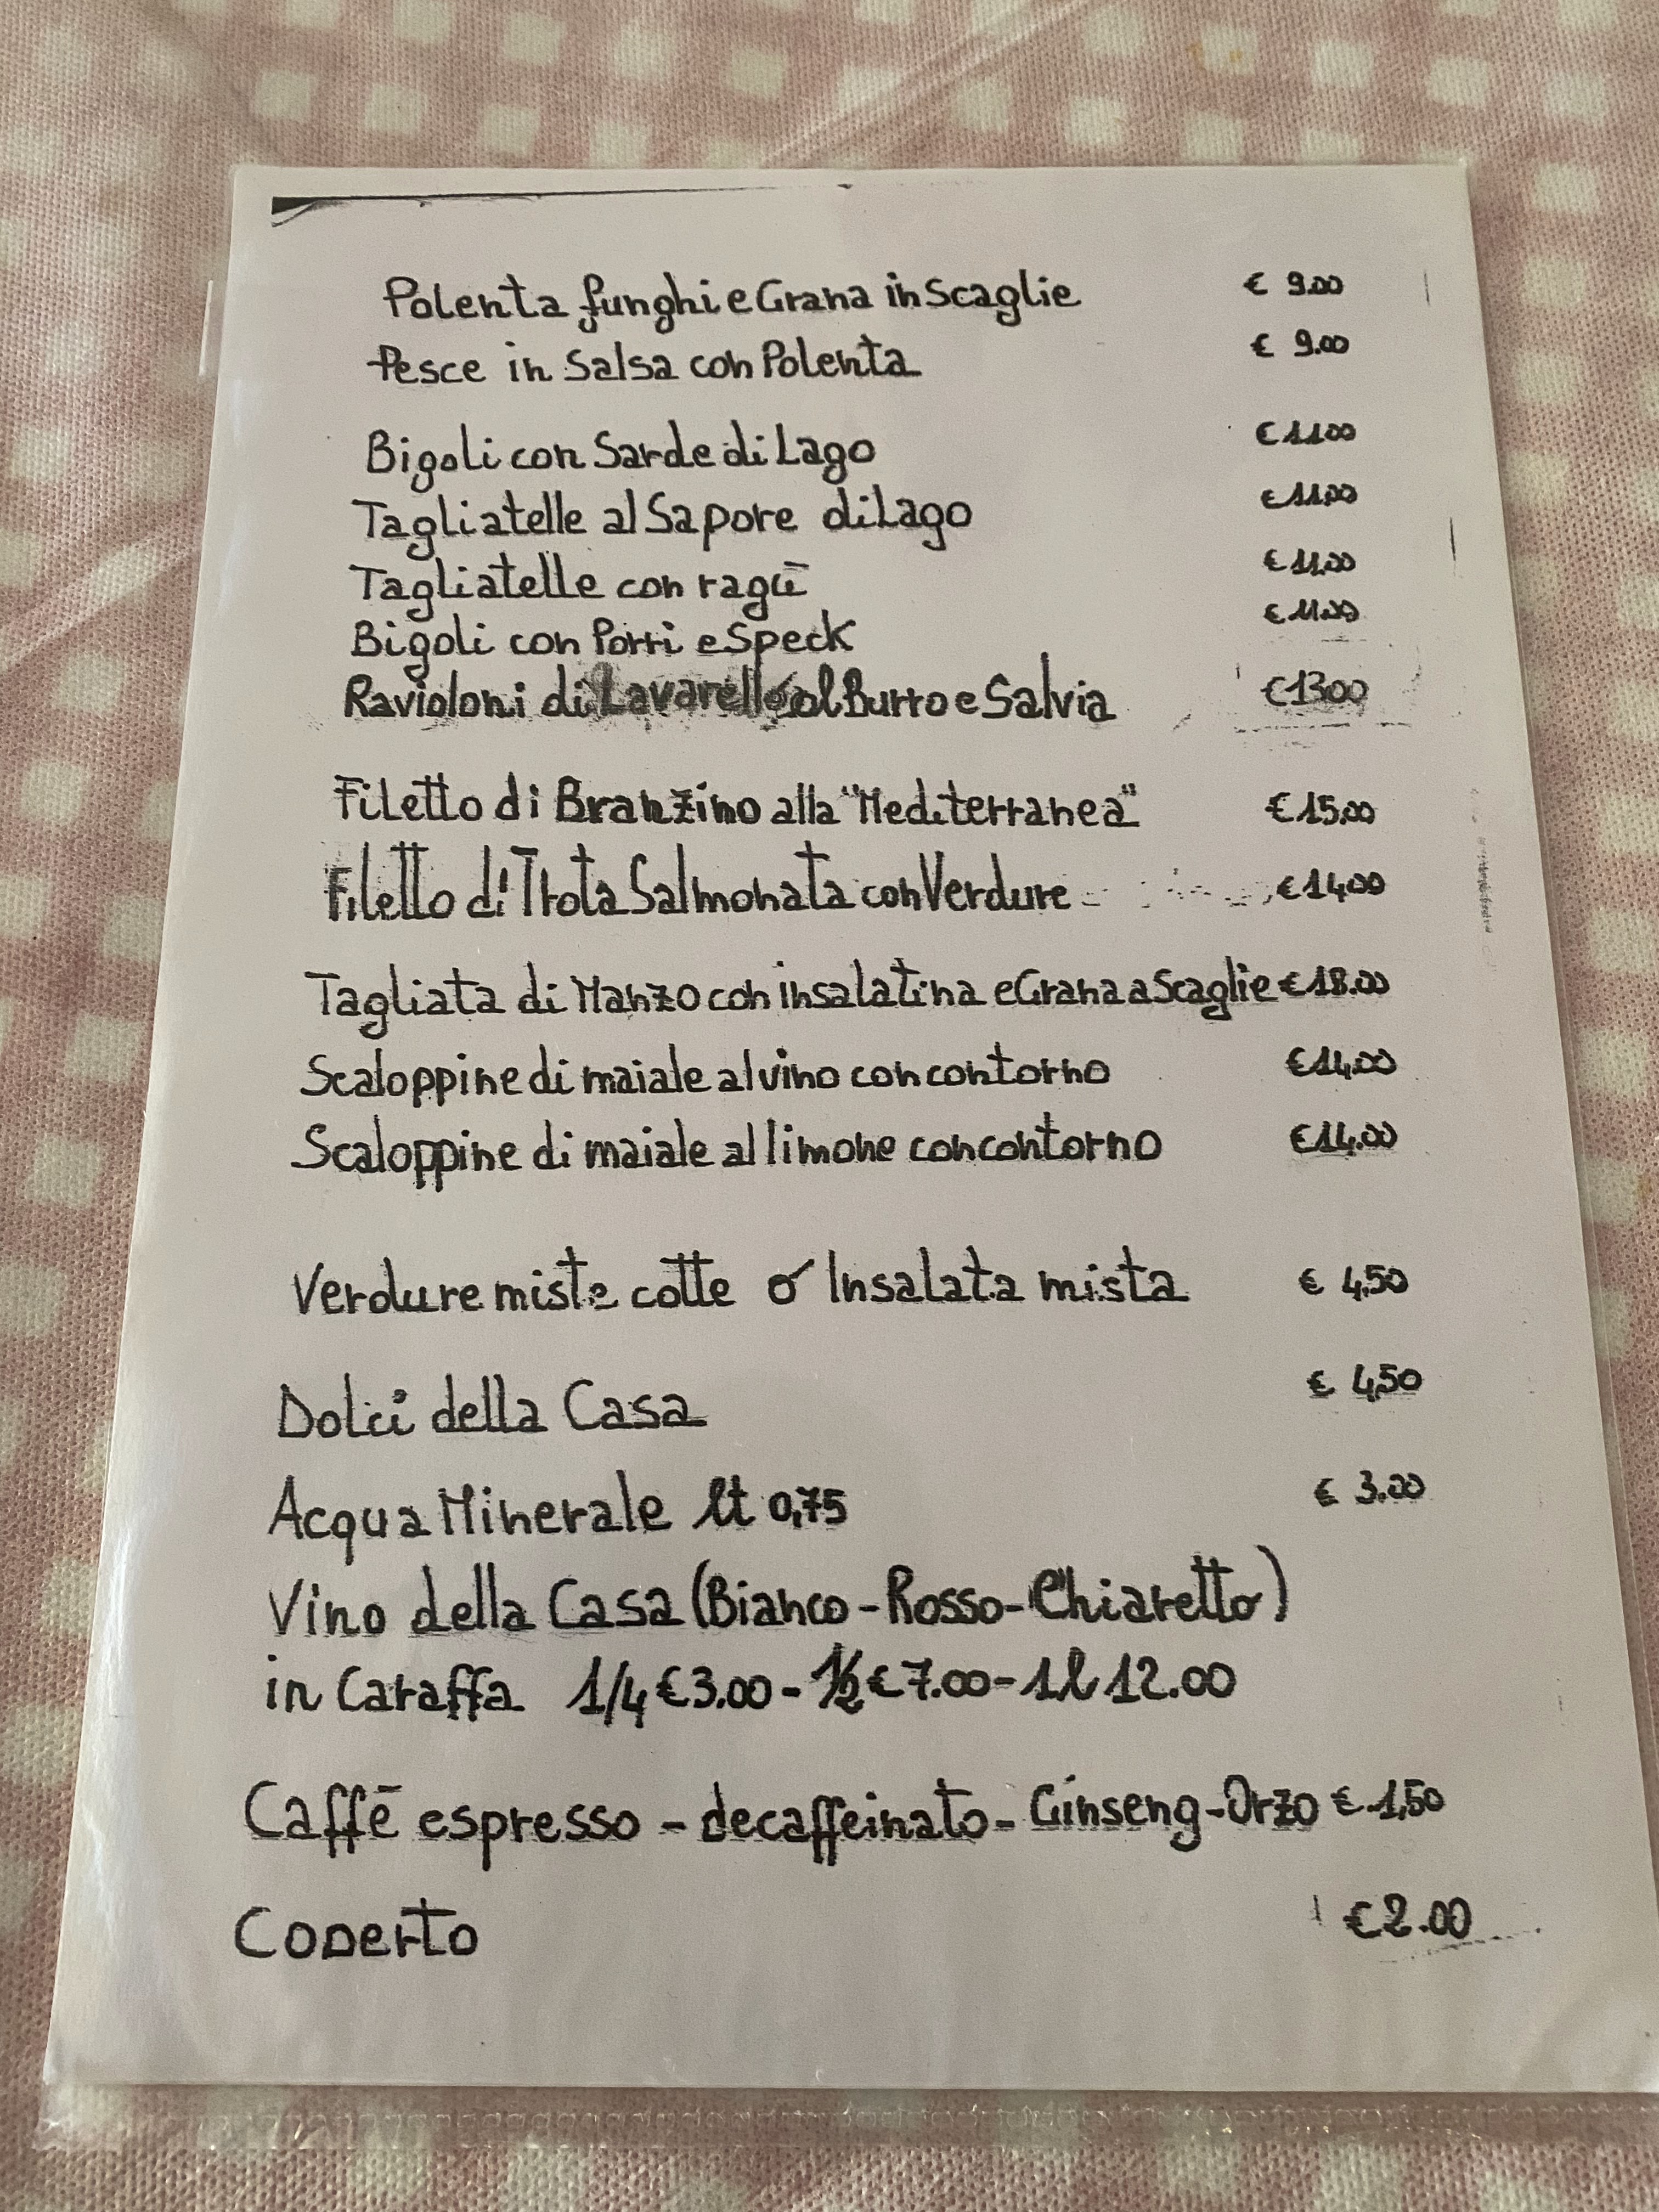 Polenta funghi e Grana in Scaglie € 9.00
Pesce in Salsa con Polenta € 9.00
Bigoli con Sarde di Lago € 11.00
Tagliatelle al Sapore di Lago € 11.00
Tagliatelle con ragù € 11.00
Bigoli con Porri e Speck € 11.00
Ravioloni di Lavarello al Burro e Salvia € 13.00
Filetto di Branzino alla "Mediterranea" € 15.00
Filetto di Trota Salmonata con Verdure € 14.00
Tagliata di Manzo con insalatina e Grana a Scaglie € 18.00
Scaloppine di maiale al vino con contorno € 14.00
Scaloppine di maiale al limone con contorno € 14.00
Verdure miste cotte o Insalata mista € 4,50
Dolci della Casa € 4,50
Acqua Minerale lt 0,75 € 3.00
Vino della Casa (Bianco - Rosso - Chiaretto)
in Caraffa 1/4 € 3.00 - 1/2 € 7.00 - 1 l 12.00
Caffè espresso - decaffeinato - Ginseng - Orzo € 1,50
Coperto € 2.00